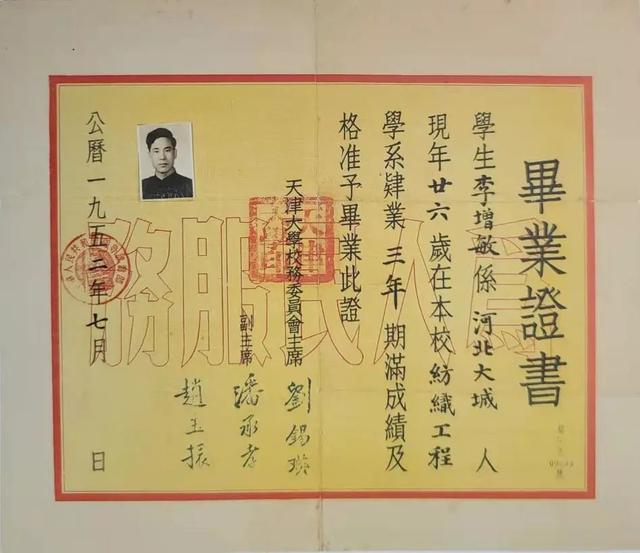 畢業證書
學生李增敏係河北大城人
現年廿六歲在本校紡織工程
學系肄業三年期滿成績及
格准予畢業此證
天津大學校務委員會主席 劉錫瑛
副主席 潘承孝
趙玉振
公曆一九五二年七月 日
為人民服務